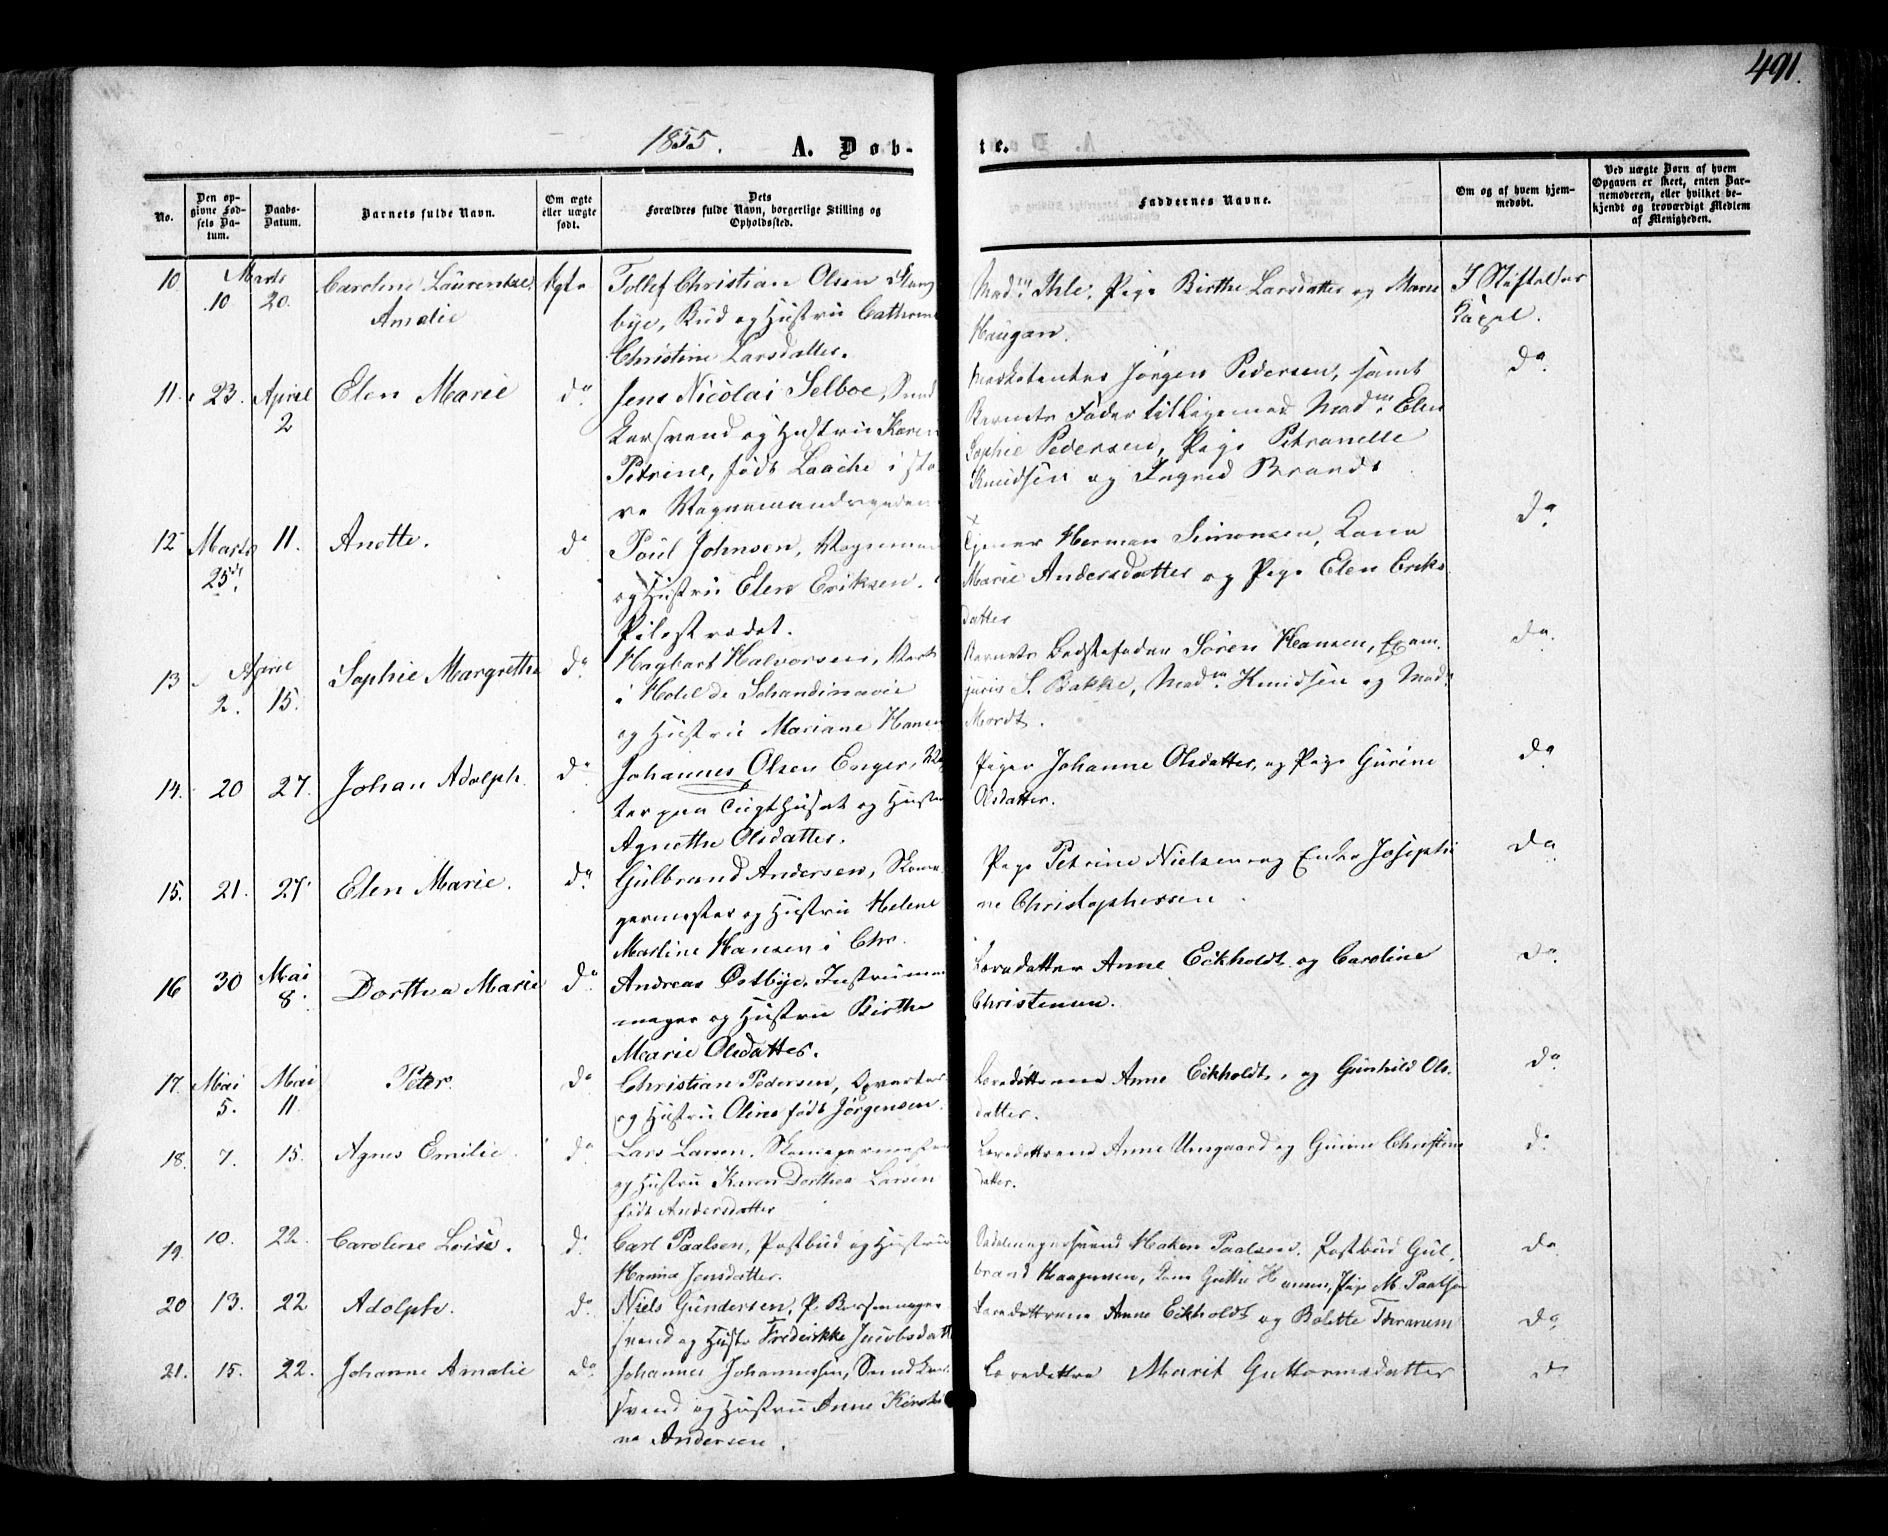 491.
1855. A. Døb- te.
No.
Den opgivne Fødsels Datum.
Daabs-Datum.
Barnets fulde Navn.
Om ægte eller uægte født.
Dets Forældres fulde Navn, borgerlige Stilling og Opholdssted.
Faddernes Navne.
Om og af hvem hjemmedøbt.
Ved uægte Børn af hvem Opgaven er skeet, enten Barnemoderen, eller hvilket bekjendt og troværdigt Medlem af Menigheden.
10 Marts 10 20. Caroline Laurentze Amalie Ægte
Tollef Christian Olsen Stang
bye, Bud og Hustru Cathrine
Christine Larsdatter.
Mad. Ihle, Pige Birthe Larsdatter og Marie
Haugan.
I Stiftelses
Kapel.
11. 23. April 2 Elen Marie do
Jens Nicolai Selboe, Sned
kersvend og Hustru Karen
Petrine, født Laache i sto
re Vognmandsgaden
Marketenter Jørgen Pedersen, samt
Barnets Fader tilligemed Madm Elen
Sophie Pedersen, Pige Petronelle
Knudsen og Ingred Brandt
do
12 Marts 25de 11. Anette. do
Poul Johnsen, Vognmand
og Hustru Elen Eriksen.
Pilestrædet.
Tjener Herman Simonsen, Kone
Marie Andersdatter og Pige Elen Eriks
datter
do
13 April 2. 15. Sophie Margrethe do
Hagbart Halvorsen, Vert
i Hotel de Schandinavie
og Hustru Mariane Hansen
Barnets Bedstefader Søren Hansen, Exam.
juris S. Bakke, Madm Knudsen og Mad.
Mordt.
do
14. 20 27. Johan Adolph. do
Johannes Olsen Enger, Væg
ter paa Tugthuset og Hustru
Agnethe Olsdatter.
Piger Johanne Olsdatter, og Pige Gurine
Olsdatter.
do
15. 21. 27 Elen Marie. do
Gulbrand Andersen, Skoma
germester og Hustru Helene
Martine Hansen i Chr.
Pige Petrine Nielsen og Enke Josephi
ne Christophersen
do
16 30 Mai 8. Dorthea Marie do
Andreas Østbye, Instrument
mager og Hustru Birthe
Marie Olsdatter.
Læredøttre Anne Eckholdt og Caroline
Christensen.
do
17. Mai 5. Mai 11. Peter. do
Christian Pedersen, Opvarter
og Hustru Oline født Jørgensen.
Læredøttrene Anne Eckholdt, og Gunhild Ols
datter.
do
18. 7. 15. Agnes Emilie do
Lars Larsen, Skomagermester
og Hustru Karen Dorthea Larsen
født Andersdatter
Læredøttrene Anne Ungaard og Gunne Christens
datter.
do
19. 10. 22. Caroline Loise. do
Carl Paalsen, Postbud og Hustru
Hanna Jensdatter.
Sadelmagersvend Haken Paalsen, Postbud Gul
brand Haagensen, Kone Grethe Hansen, Pige M. Paalsen
do
20 13. 22 Adolph. do
Niels Gundersen, P. Børsemager
svend og Hustr Frederikke Jacobsdatt
Læredøttrene Anne Eckholdt og Bolette
do
21. 15. 22. Johanne Amalie do
Johannes Johannessen, Snedker
svend og Hustru Anne Kirsti
ne Andersen.
Læredøttre Marit Guttormsdatter
do